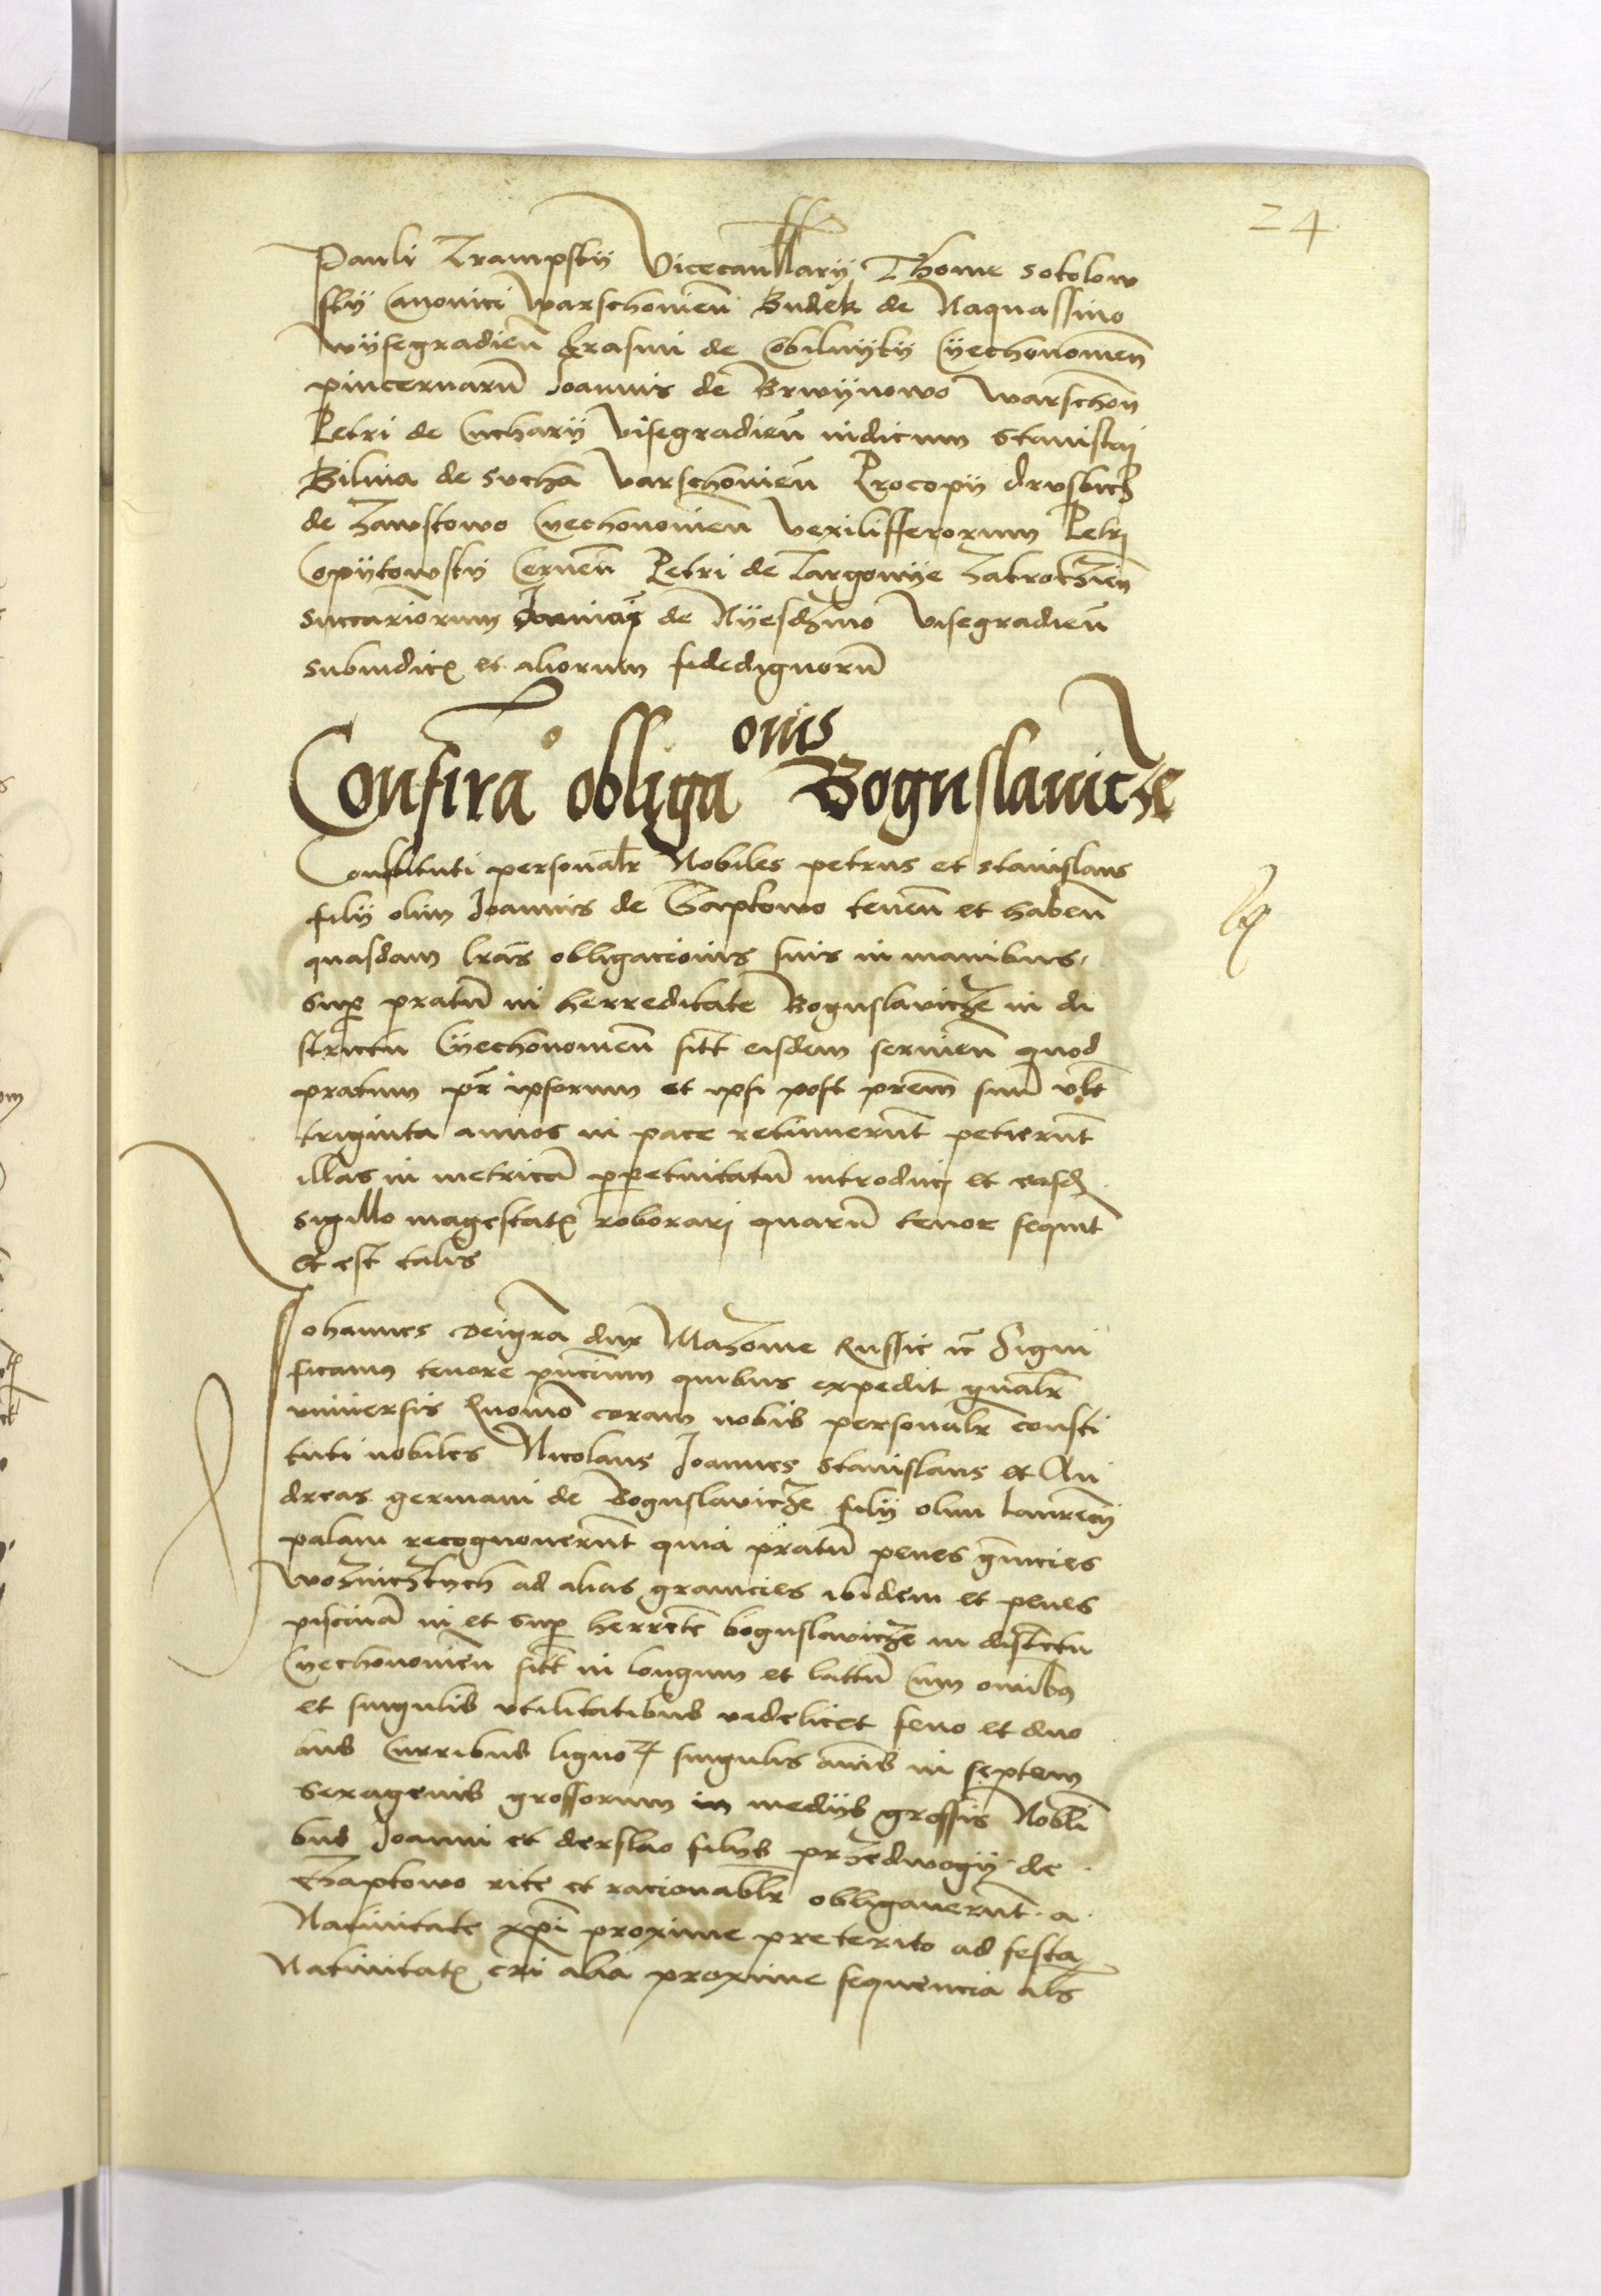 24
Pauli Trampsky Vicecancellarij Thome Sokolow
sky Canonici Warschouien̄ Budek de Naquassino
Wysegradien̄ Erasmi de Obilnyky Cyechonouien̄
pincernarū Joannis de Brwynowo Warschouien̄
Petri de Cuchary Visegradien̄ iudicum Stanislai
Bilina de Sucha Varschouien̄ Procopij
de Cyechonouien̄ vexilifferorum Petri
Copytowsky Cernen̄ Petri de Targonye Zakroczien̄
succariorum de Nyesdzino Visegradien̄
subiudicꝭ et aliorum fidedignorū
Confirā obligaonis Boguslauicze
Constituti personalr̄ Nobiles petrus et stanislaus
filij olim Joannis de Czapkowo tenen̄ et haben̄
quasdam lrās obligacionis suis in manibus
sup pratū in herreditate Boguslavicze in di
strictu Cyechonouien̄ sitt̄ eisdem seruien̄ quod
pratum pr̄ ipsorum et ipsi post prem̄ suū vlt̄
triginta annos in pace retinuerūt petierūt
illas in metricā ꝑpetuitatū introduci et easdꝫ
sigillo magestatꝭ roborari quarū tenor sequit̄
et est talis
Johannes Dei grā dux Mazouie Russie ꝛc̄ Signi
ficamꝰ tenore pn̄cium quibus expedit gn̄alr̄
vniuersis Quomō coram nobis personalr̄ consti
tuti nobiles Nicolaus Joannes Stanislaus et An
dreas germani de Boguslavicze filij olim laurecij
palam recognouerūt quia pratū penes grn̄icies
Wozniczskych ad alias granicies ibidem et penes
piscinā in et sup herretē boguslavicze in districtu
Cyechonouien̄ sitt̄ in longum et lattū cum omībꝰ
et singulis vtilitatibus videlicet feno et duo
bus Curribus lignoꝝ singulis ān̄is in septem
sexagenis grossorum in medijs grossis Nobli
bus Joanni et derslao filijs przedwogij de
Czapkowo rite et racionablr̄ obligauerūt a
Natiuitate xpī proxime preterito ad festa
Natiuitatꝭ eri alia proxime sequencia als̄